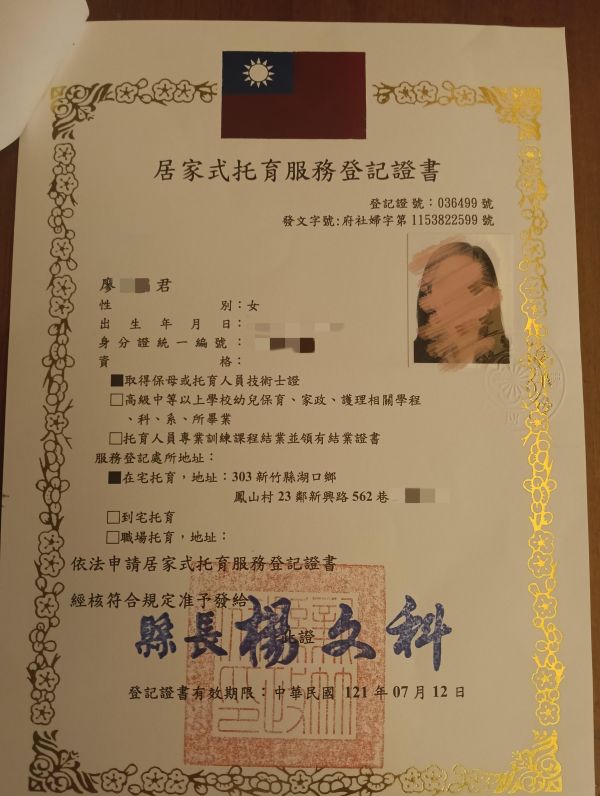 居家式托育服務登記證書
登記證號：036499 號
發文字號：府社婦字第 1153822599 號
廖 君
性別：女
出生年月日：
身分證統一編號：
資格：
■取得保母或托育人員技術士證
□高級中等以上學校幼兒保育、家政、護理相關學程
、科、系、所畢業
□托育人員專業訓練課程結業並領有結業證書
服務登記處所地址：
■在宅托育，地址：303 新竹縣湖口鄉
鳳山村 23 鄰新興路 562 巷
□到宅托育
□職場托育，地址：
依法申請居家式托育服務登記證書
經核符合規定准予發給
此證
縣長楊文科
登記證書有效期限：中華民國 121 年 07 月 12 日